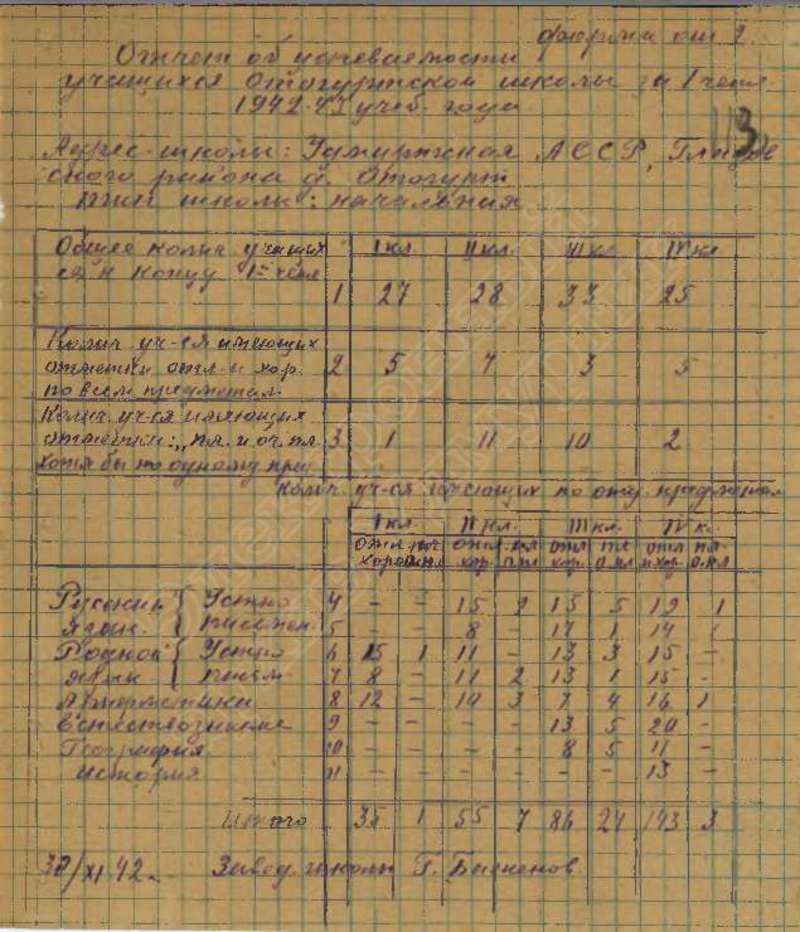 форма от 2.
Отчет об успеваемости
учащихся Отогуртской школы за I четв.
1942-43 учеб. года
113
Адрес школы: Удмуртская АССР, Глазов
ского района д. Отогурт
тип школы: начальная
Общее колич. учащих I кл II кл. III кл IV кл
ся к концу 1й четв 1 27 28 33 25
Колич. уч-ся имеющих
отметки отл. и хор. 2 5 7 3 5
по всем предметам
Колич. уч-ся имеющих
отметки: "пл. и оч. пл 3 1 11 10 2
хотя бы по одному пред
Колич. уч-ся имеющих по отд. предметам
I кл. II кл. III кл. IV к.
отл. пл отл пл отл пл отл пл
хор хор о.пл хор о.пл и хор о.пл
Русский Устно 4 – – 15 2 15 5 12 1
язык. письмен. 5 – – 8 – 17 1 14
Родной Устно 6 15 1 11 – 13 3 15 –
язык письм. 7 8 – 11 2 13 1 15 -
Арифметика 8 12 – 10 3 7 4 16 1
Естествознание 9 – – – – 13 5 20 -
География 10 – – – – 8 5 11 –
история 11 – – – – – – 13 –
Итого 35 1 55 7 86 24 143 3
30/XI 42 г. Завед. школы Г.